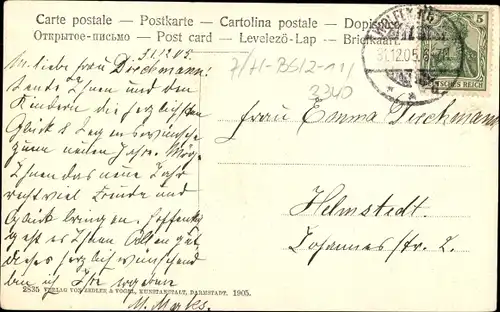 Carte postale — Postkarte — Cartolina postale — Dopisnice
Открытое-письмо — Post card — Levelező-Lap — Briefkaart
31.12.05.
Liebe Frau Dieckmann!
Sende Ihnen und den
Kindern die herzlichsten
Glück & Segenswünsche
zum neuen Jahre. Möge
Ihnen das neue Jahr
recht viel Freude und
Glück bringen. Hoffentlich
geht es Ihnen Allen gut,
dieses herzlich wünschend
bin ich Ihre ergebene
M. Marks.
31.12.05.
5
DEUTSCHES REICH
7/H-BS12-11/
3340
Frau Emma Dieckmann
Helmstedt.
Johannesstr. 2.
2835 VERLAG VON ZEDLER & VOGEL, KUNSTANSTALT, DARMSTADT. 1905.